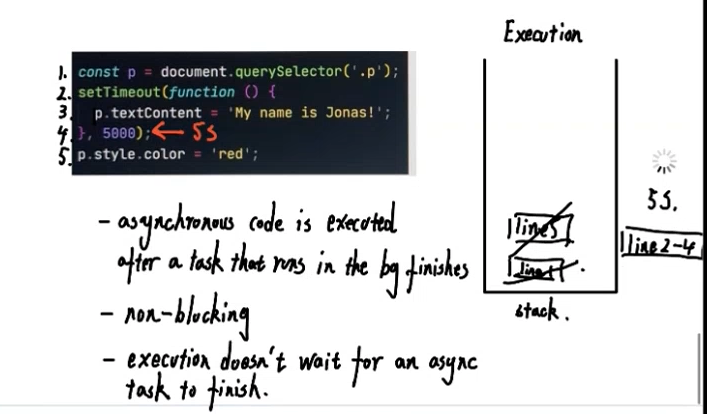 Execution
1. const p = document.querySelector('.p');
2. setTimeout(function () {
3. p.textContent = 'My name is Jonas!';
4. }, 5000); ← 5s
5. p.style.color = 'red';
- asynchronous code is executed
after a task that runs in the bg finishes
- non-blocking
- execution doesn't wait for an async
task to finish.
line5
line1
stack.
5s.
line 2-4